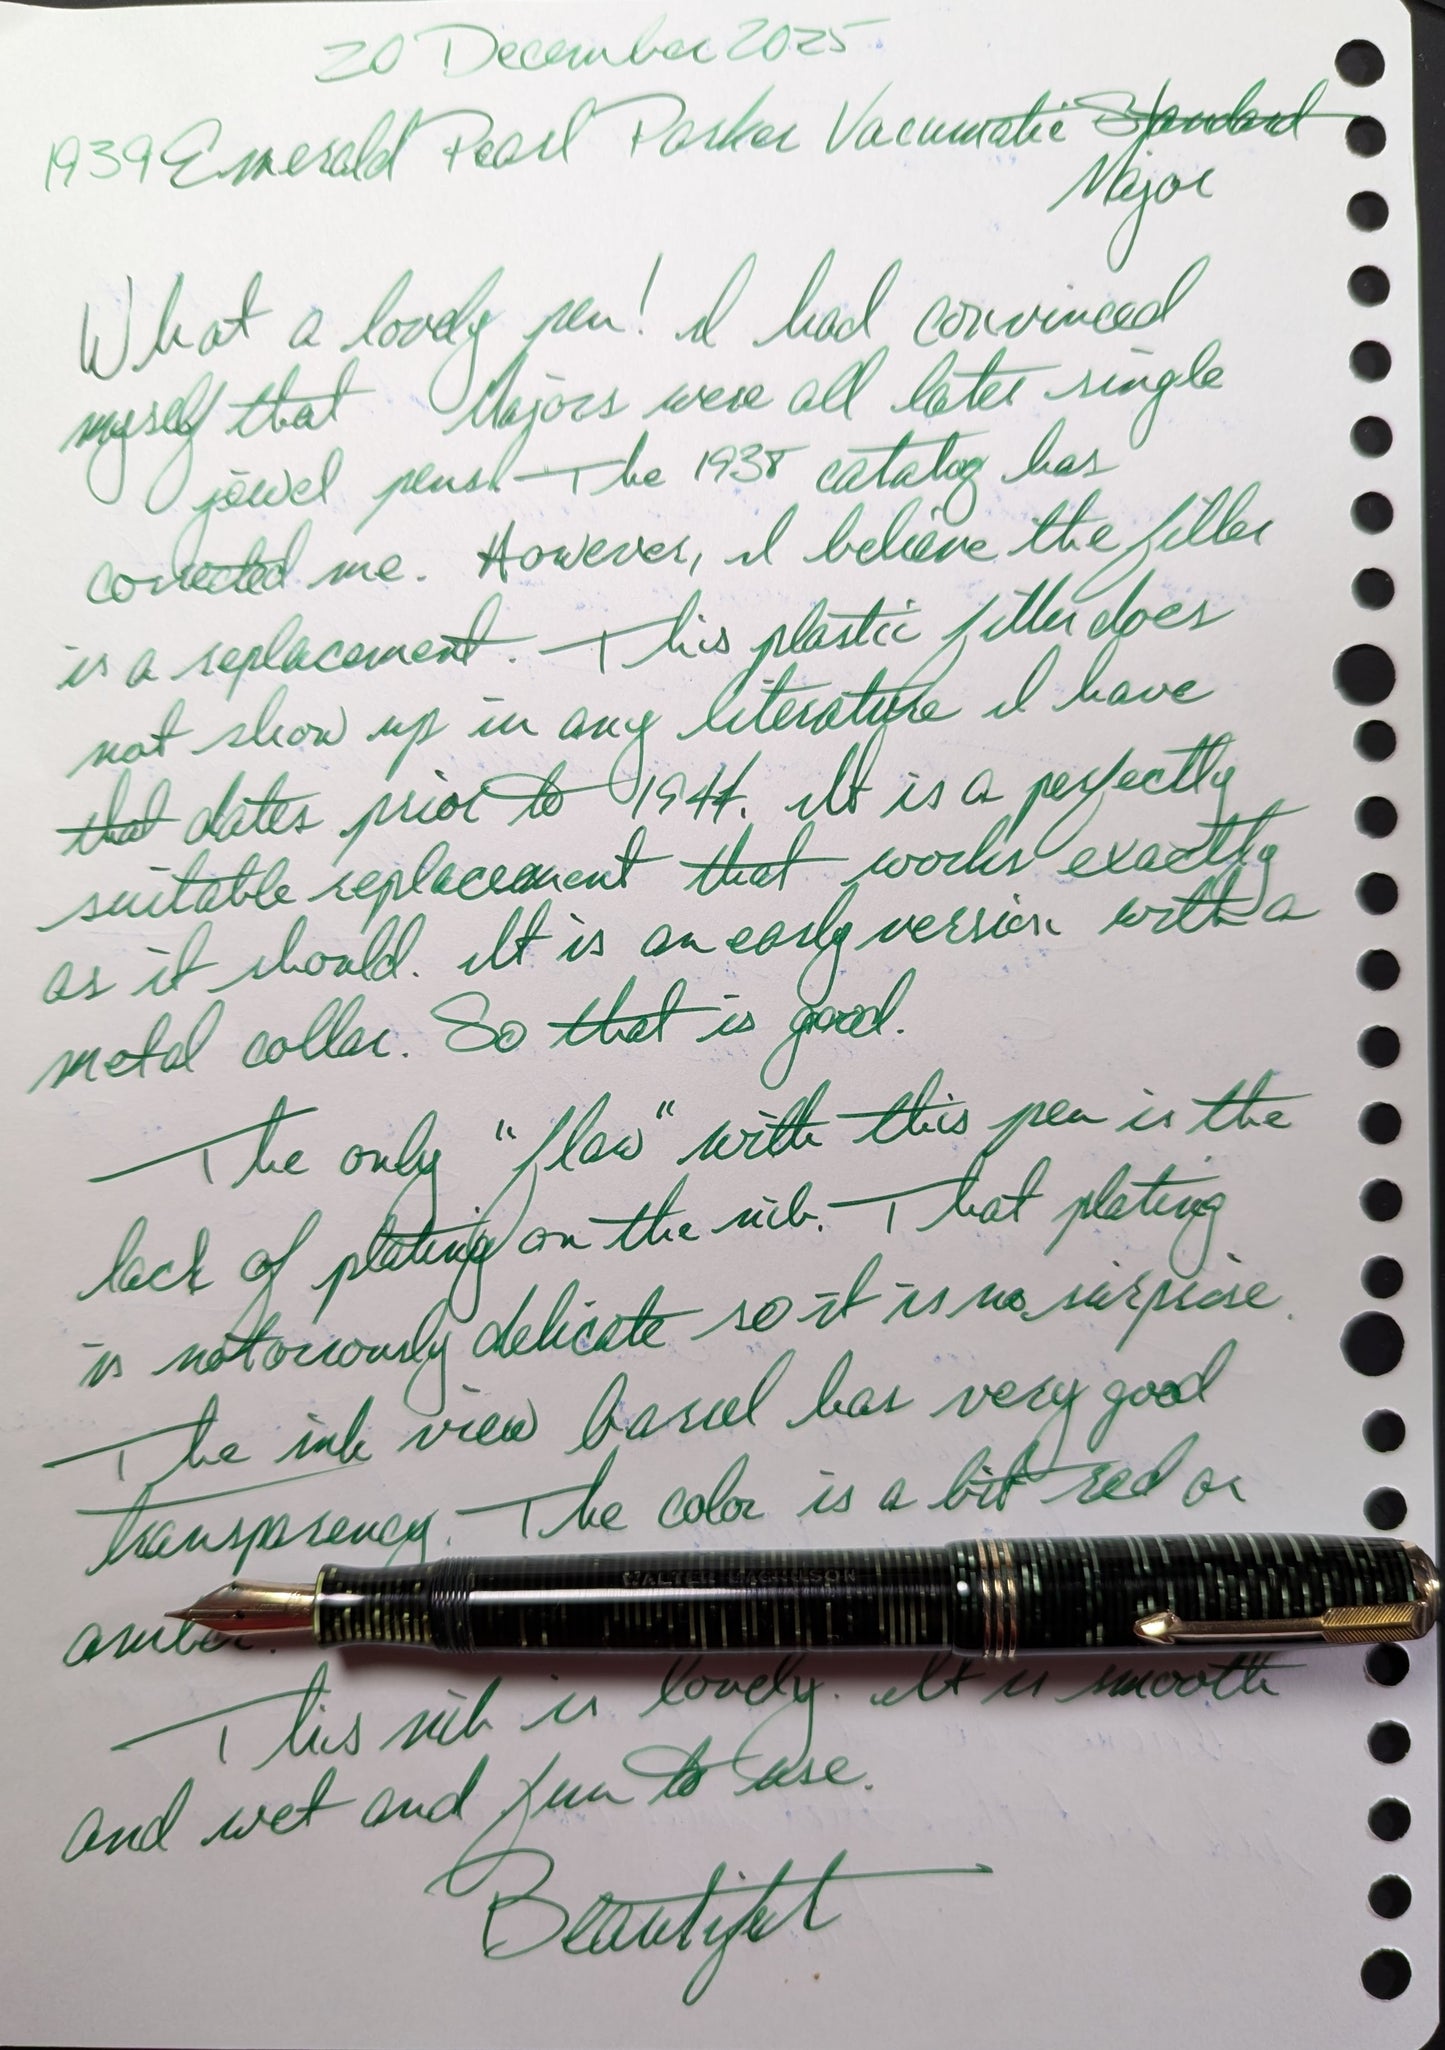 20 December 2025
1939 Emerald Pearl Parker Vacumatic Standard
Major
What a lovely pen! I had convinced
myself that Majors were all later single
jewel pens. The 1938 catalog has
corrected me. However, I believe the filler
is a replacement. This plastic filler does
not show up in any literature I have
that dates prior to 1941. It is a perfectly
suitable replacement that works exactly
as it should. It is an early version with a
metal collar. So that is good.
The only "flaw" with this pen is the
lack of plating on the nib. That plating
is notoriously delicate so it is no surprise.
The ink view barrel has very good
transparency. The color is a bit red or
WALTER MAGNUSON
amber.
This nib is lovely. It is smooth
and wet and fun to use.
Beautiful